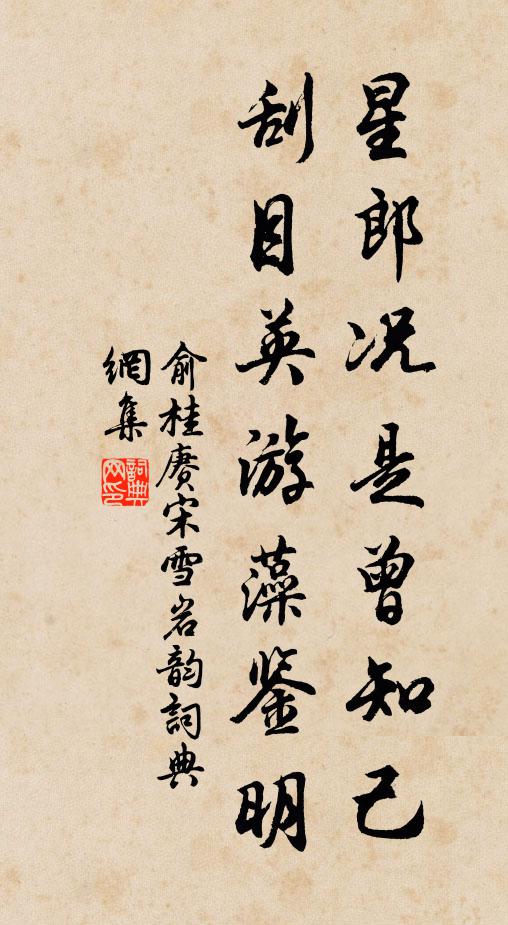 星郎况是曾知己
刮目英游藻鉴明
俞桂赓宋雪岩韵詞典
網集
詞典网印